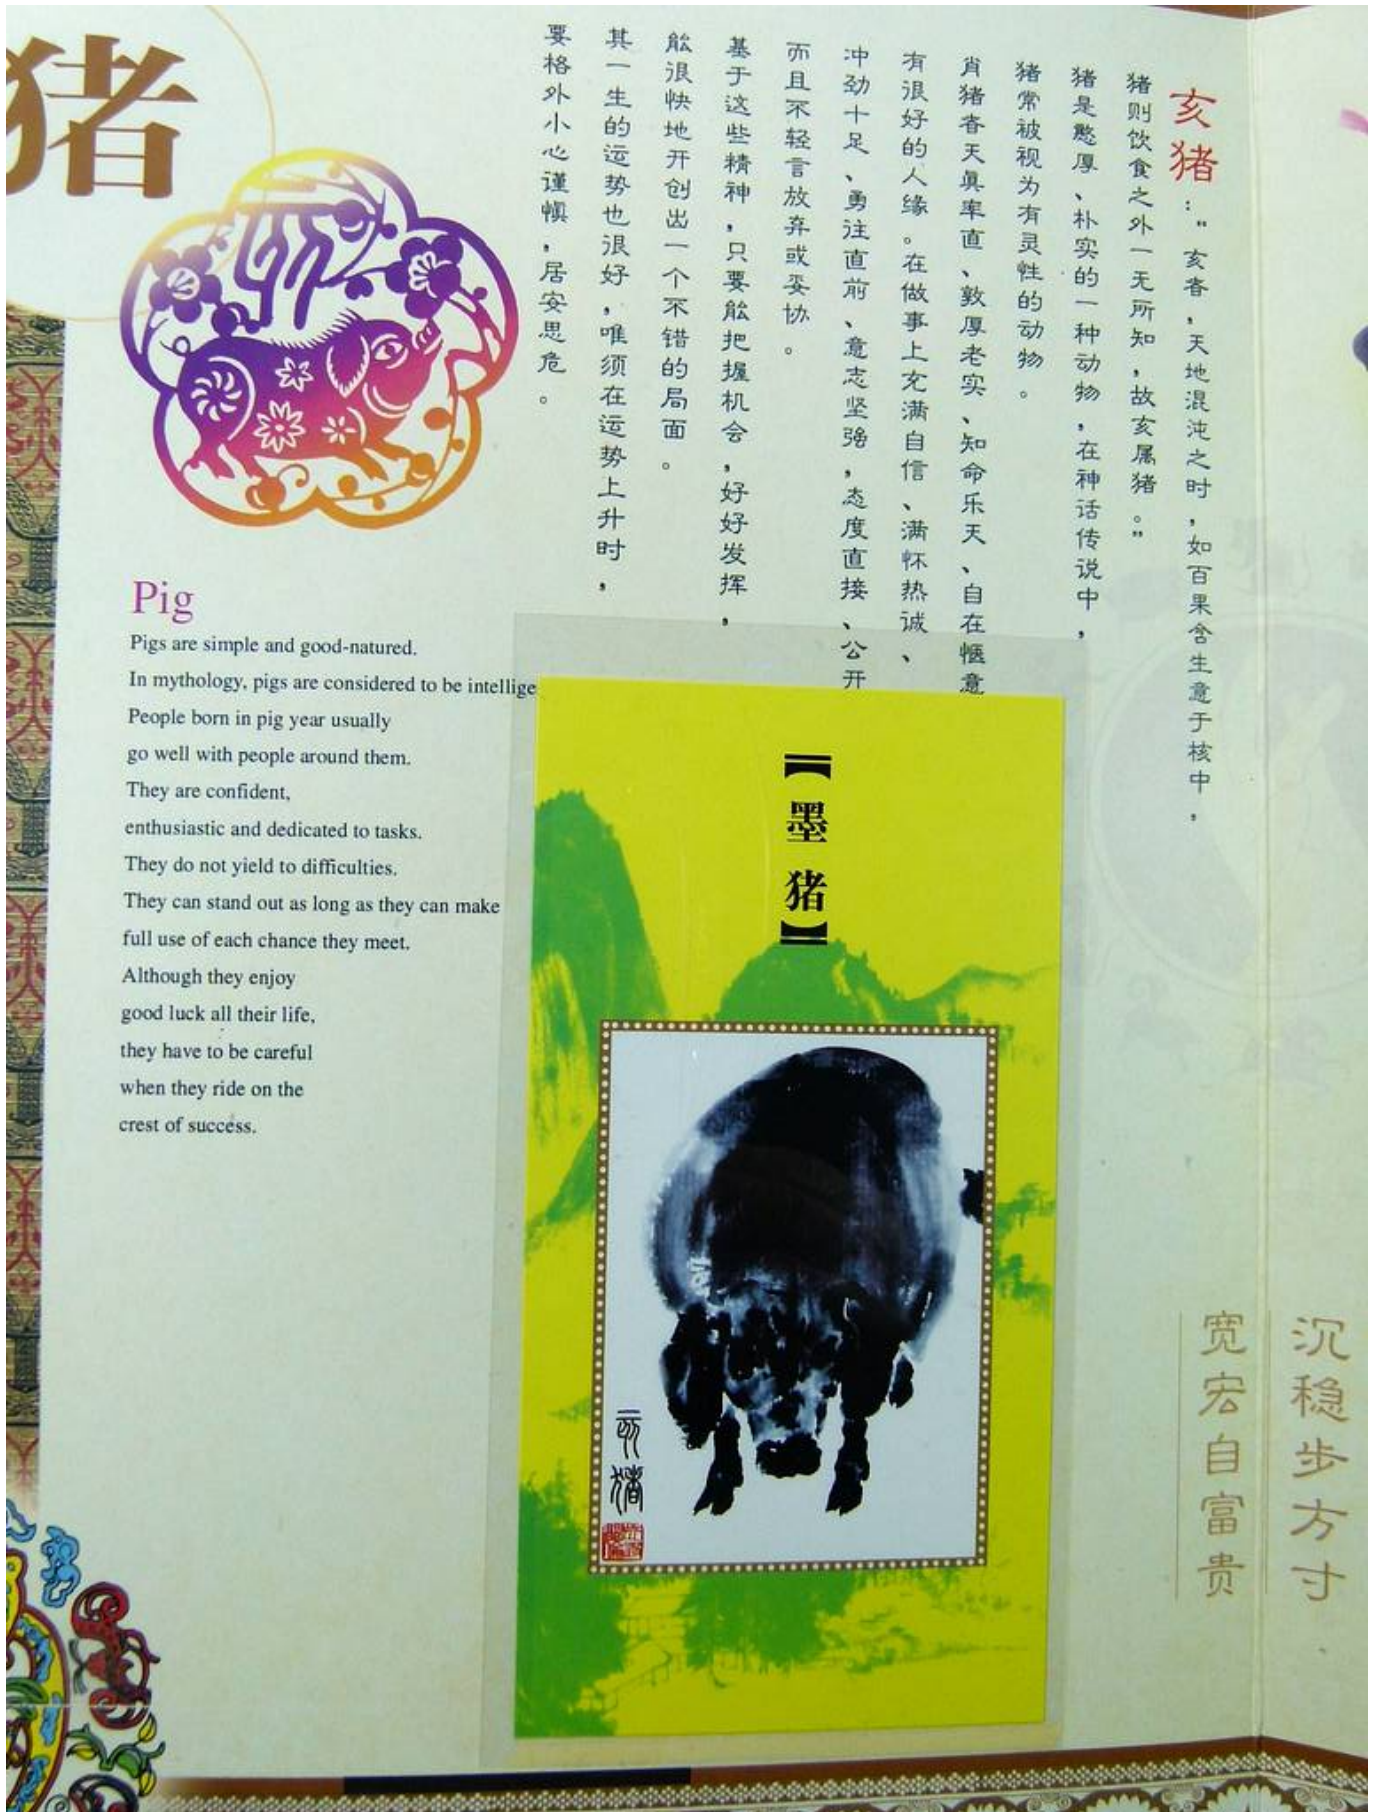 猪
亥猪："亥者，天地混沌之时，如百果含生意于核中，
猪则饮食之外一无所知，故亥属猪。"
猪是憨厚、朴实的一种动物，在神话传说中，
猪常被视为有灵性的动物。
肖猪者天真率直、敦厚老实、知命乐天、自在惬意
有很好的人缘。在做事上充满自信、满怀热诚、
冲劲十足、勇往直前、意志坚强，态度直接、公开
而且不轻言放弃或妥协。
基于这些精神，只要能把握机会，好好发挥，
能很快地开创出一个不错的局面。
其一生的运势也很好，唯须在运势上升时，
要格外小心谨慎，居安思危。
Pig
Pigs are simple and good-natured.
In mythology, pigs are considered to be intellige
People born in pig year usually
go well with people around them.
They are confident,
enthusiastic and dedicated to tasks.
They do not yield to difficulties.
They can stand out as long as they can make
full use of each chance they meet.
Although they enjoy
good luck all their life,
they have to be careful
when they ride on the
crest of success.
【墨猪】
亥猪
沉稳步方寸
宽宏自富贵